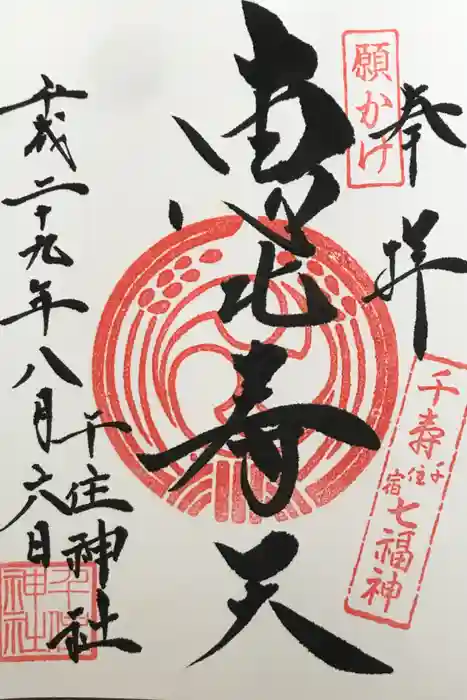 願かけ
奉拝
千寿
千住宿
七福神
恵比寿天
平成二十九年八月六日
千住神社
千住
神社